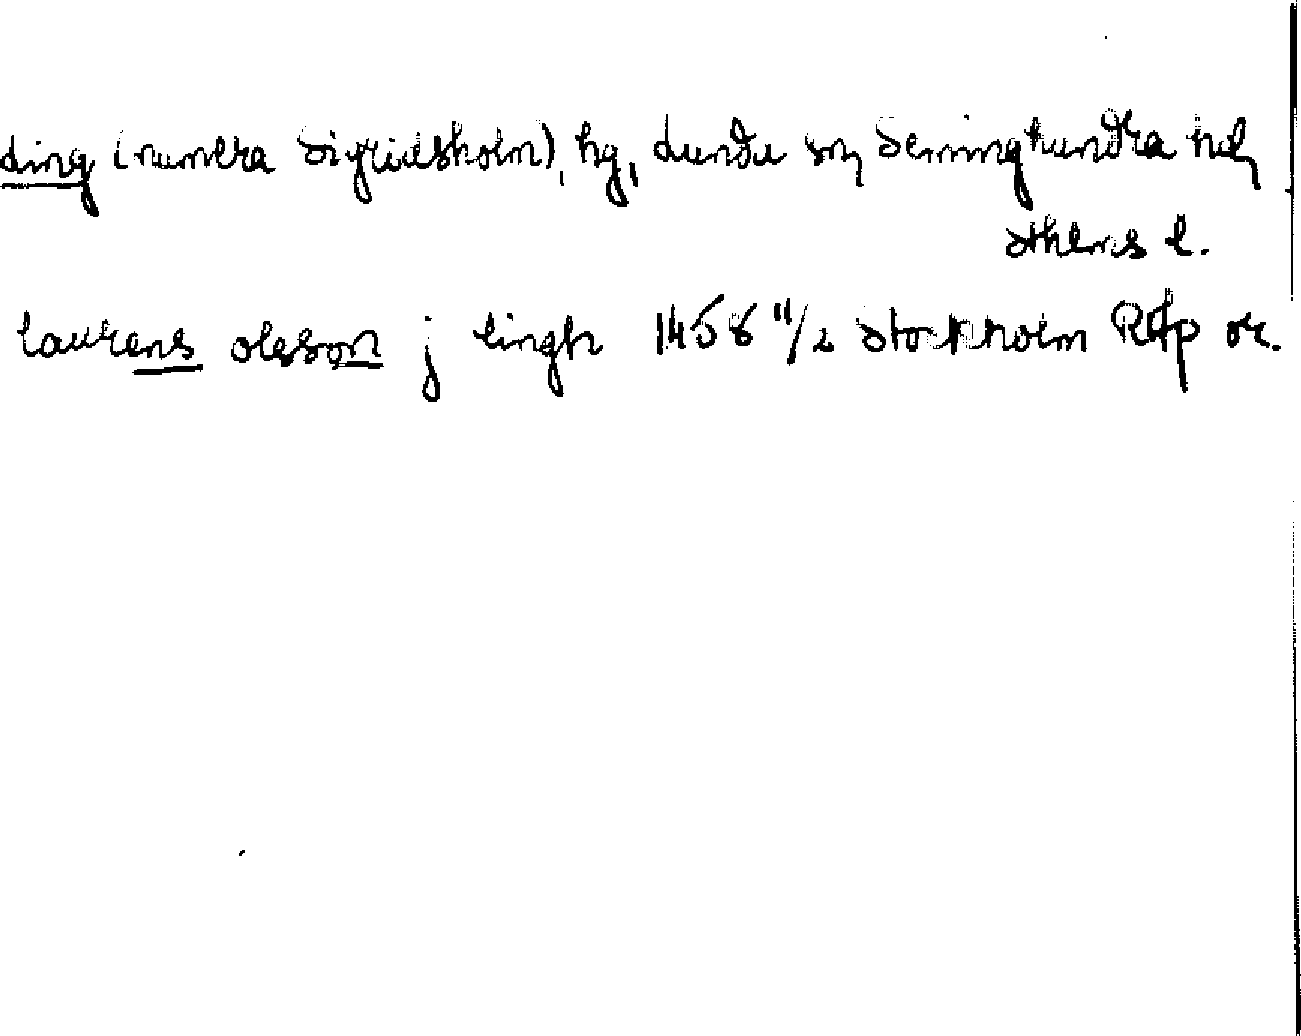 ding (numera Sigridsholm), hg, Lunda sn, Seminghundra hd,
Sthlms l.
laurens olsson j lingh 1458 11/2 Stockholm RAp or.